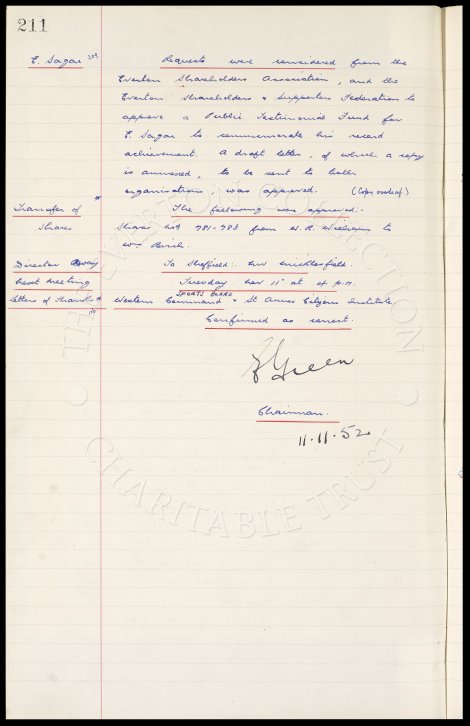 211
E. Sagar 209. Requests were considered from the
Everton Shareholders Association, and the
Everton Shareholders & Supporters Federation to
approve a Public Testimonial Fund for
E. Sagar to commemorate his record
achievement. A draft letter, of which a copy
is annexed, to be sent to both
organisations, was approved. (Copy overleaf.)
Transfer of The following was approved:-
Shares Shares Nos 781-783 from W. R. Williams to
Wm Birch.
Director To Sheffield: Mr Micklesfield.
Next Meeting Tuesday Nov 11th at 4 P.M.
SPORTS BOARD
Letters of Thanks Western Command & St Annes Citizens Institute
Confirmed as correct.
Green
Chairman.
11.11.52
THE EVERTON COLLECTION
CHARITABLE TRUST